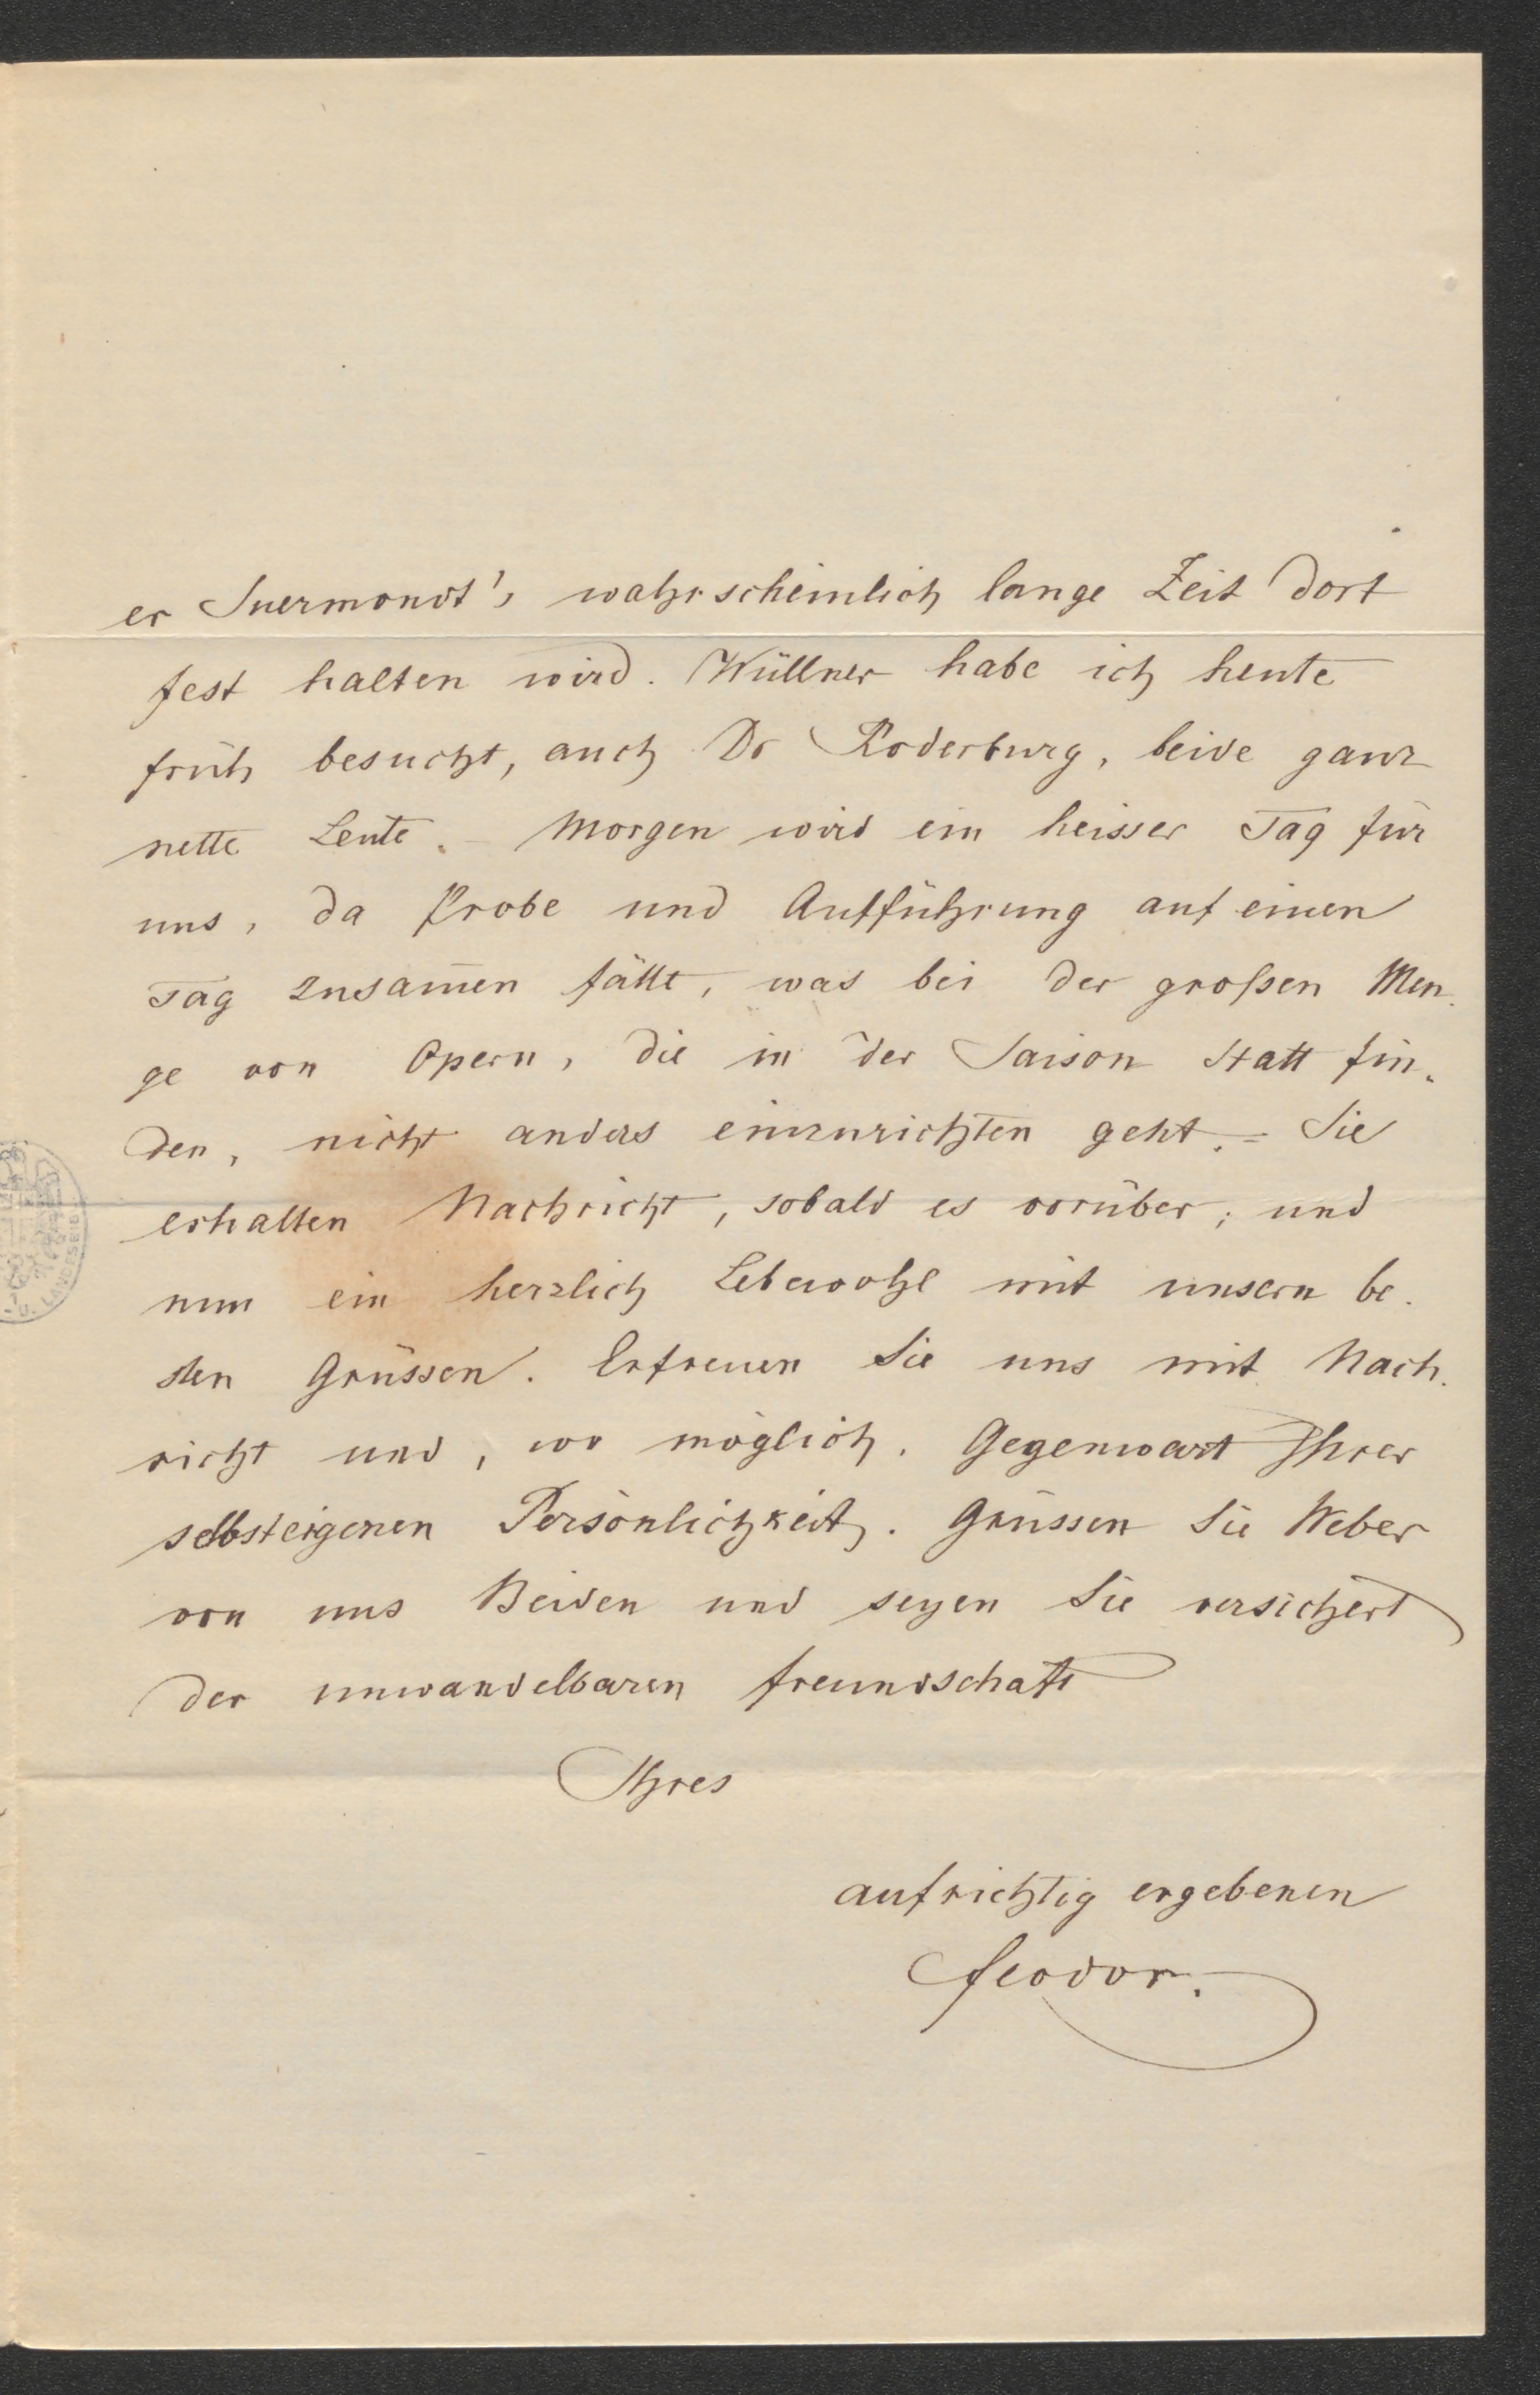 er Suermondt's wahrscheinlich lange Zeit dort
fest halten wird. Wüllner habe ich heute
früh besucht, auch Dr Roderburg, beide ganz
nette Leute. – Morgen wird ein heisser Tag für
uns, da Probe und Aufführung auf einen
Tag zusam̅en fällt, was bei der großen Men-
ge von Opern, die in der Saison Statt fin-
den, nicht anders einzurichten geht. = Sie
erhalten Nachricht, sobald es vorüber; und
nun ein herzlich Lebewohl mit unsern be-
sten Grüssen. Erfreuen Sie uns mit Nach-
richt und, wo möglich, Gegenwart Ihrer
selbsteigenen Persönlichkeit. Grüssen Sie Weber
von uns Beiden und seyen Sie versichert
der unwandelbaren Freundschaft
Ihres
aufrichtig ergebenen
Feodor.
U. LANDES